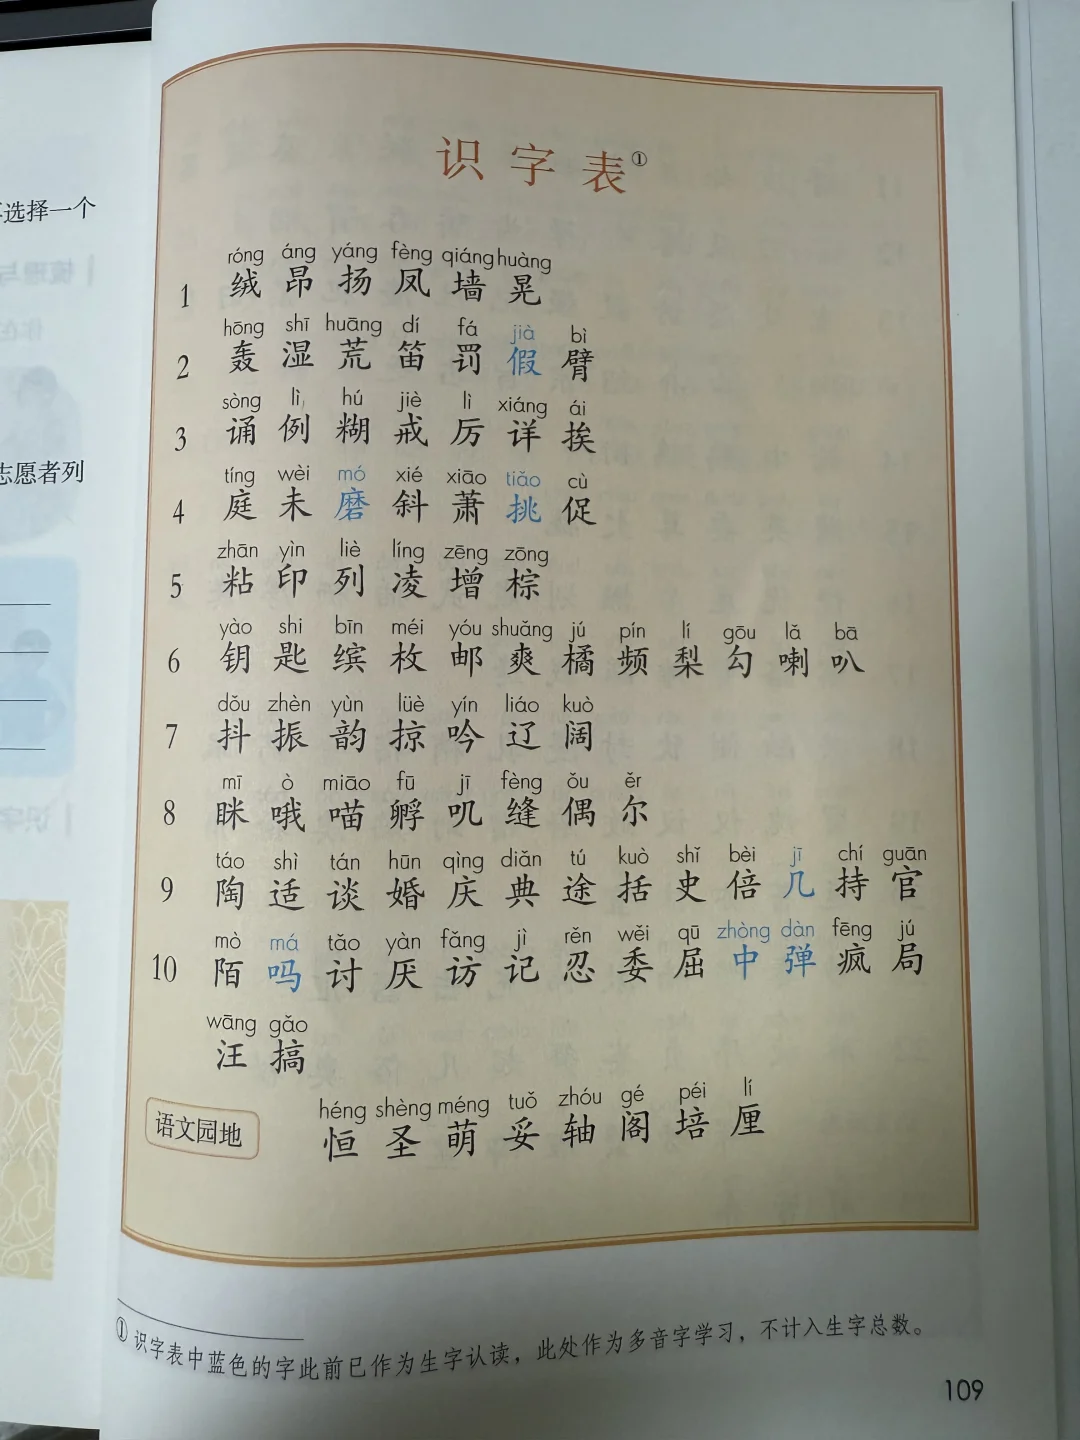 选择一个
志愿者列
识字表①
róng áng yáng fèng qiáng huàng
1 绒 昂 扬 凤 墙 晃
hōng shī huāng dí fá jià bì
2 轰 湿 荒 笛 罚 假 臂
sòng lì hú jiè lì xiáng ái
3 诵 例 糊 戒 厉 详 挨
tíng wèi mó xié xiāo tiǎo cù
4 庭 未 磨 斜 萧 挑 促
zhān yìn liè líng zēng zōng
5 粘 印 列 凌 增 棕
yào shi bīn méi yóu shuǎng jú pín lí gōu lǎ bā
6 钥 匙 缤 枚 邮 爽 橘 频 梨 勾 喇 叭
dǒu zhèn yùn lüè yín liáo kuò
7 抖 振 韵 掠 吟 辽 阔
mī ò miāo fū jī fèng ǒu ěr
8 眯 哦 喵 孵 叽 缝 偶 尔
táo shì tán hūn qìng diǎn tú kuò shǐ bèi jī chí guān
9 陶 适 谈 婚 庆 典 途 括 史 倍 几 持 官
mò má tǎo yàn fǎng jì rěn wěi qū zhòng dàn fēng jú
10 陌 吗 讨 厌 访 记 忍 委 屈 中 弹 疯 局
wāng gǎo
汪 搞
héng shèng méng tuǒ zhóu gé péi lí
语文园地 恒 圣 萌 妥 轴 阁 培 厘
① 识字表中蓝色的字此前已作为生字认读，此处作为多音字学习，不计入生字总数。
109